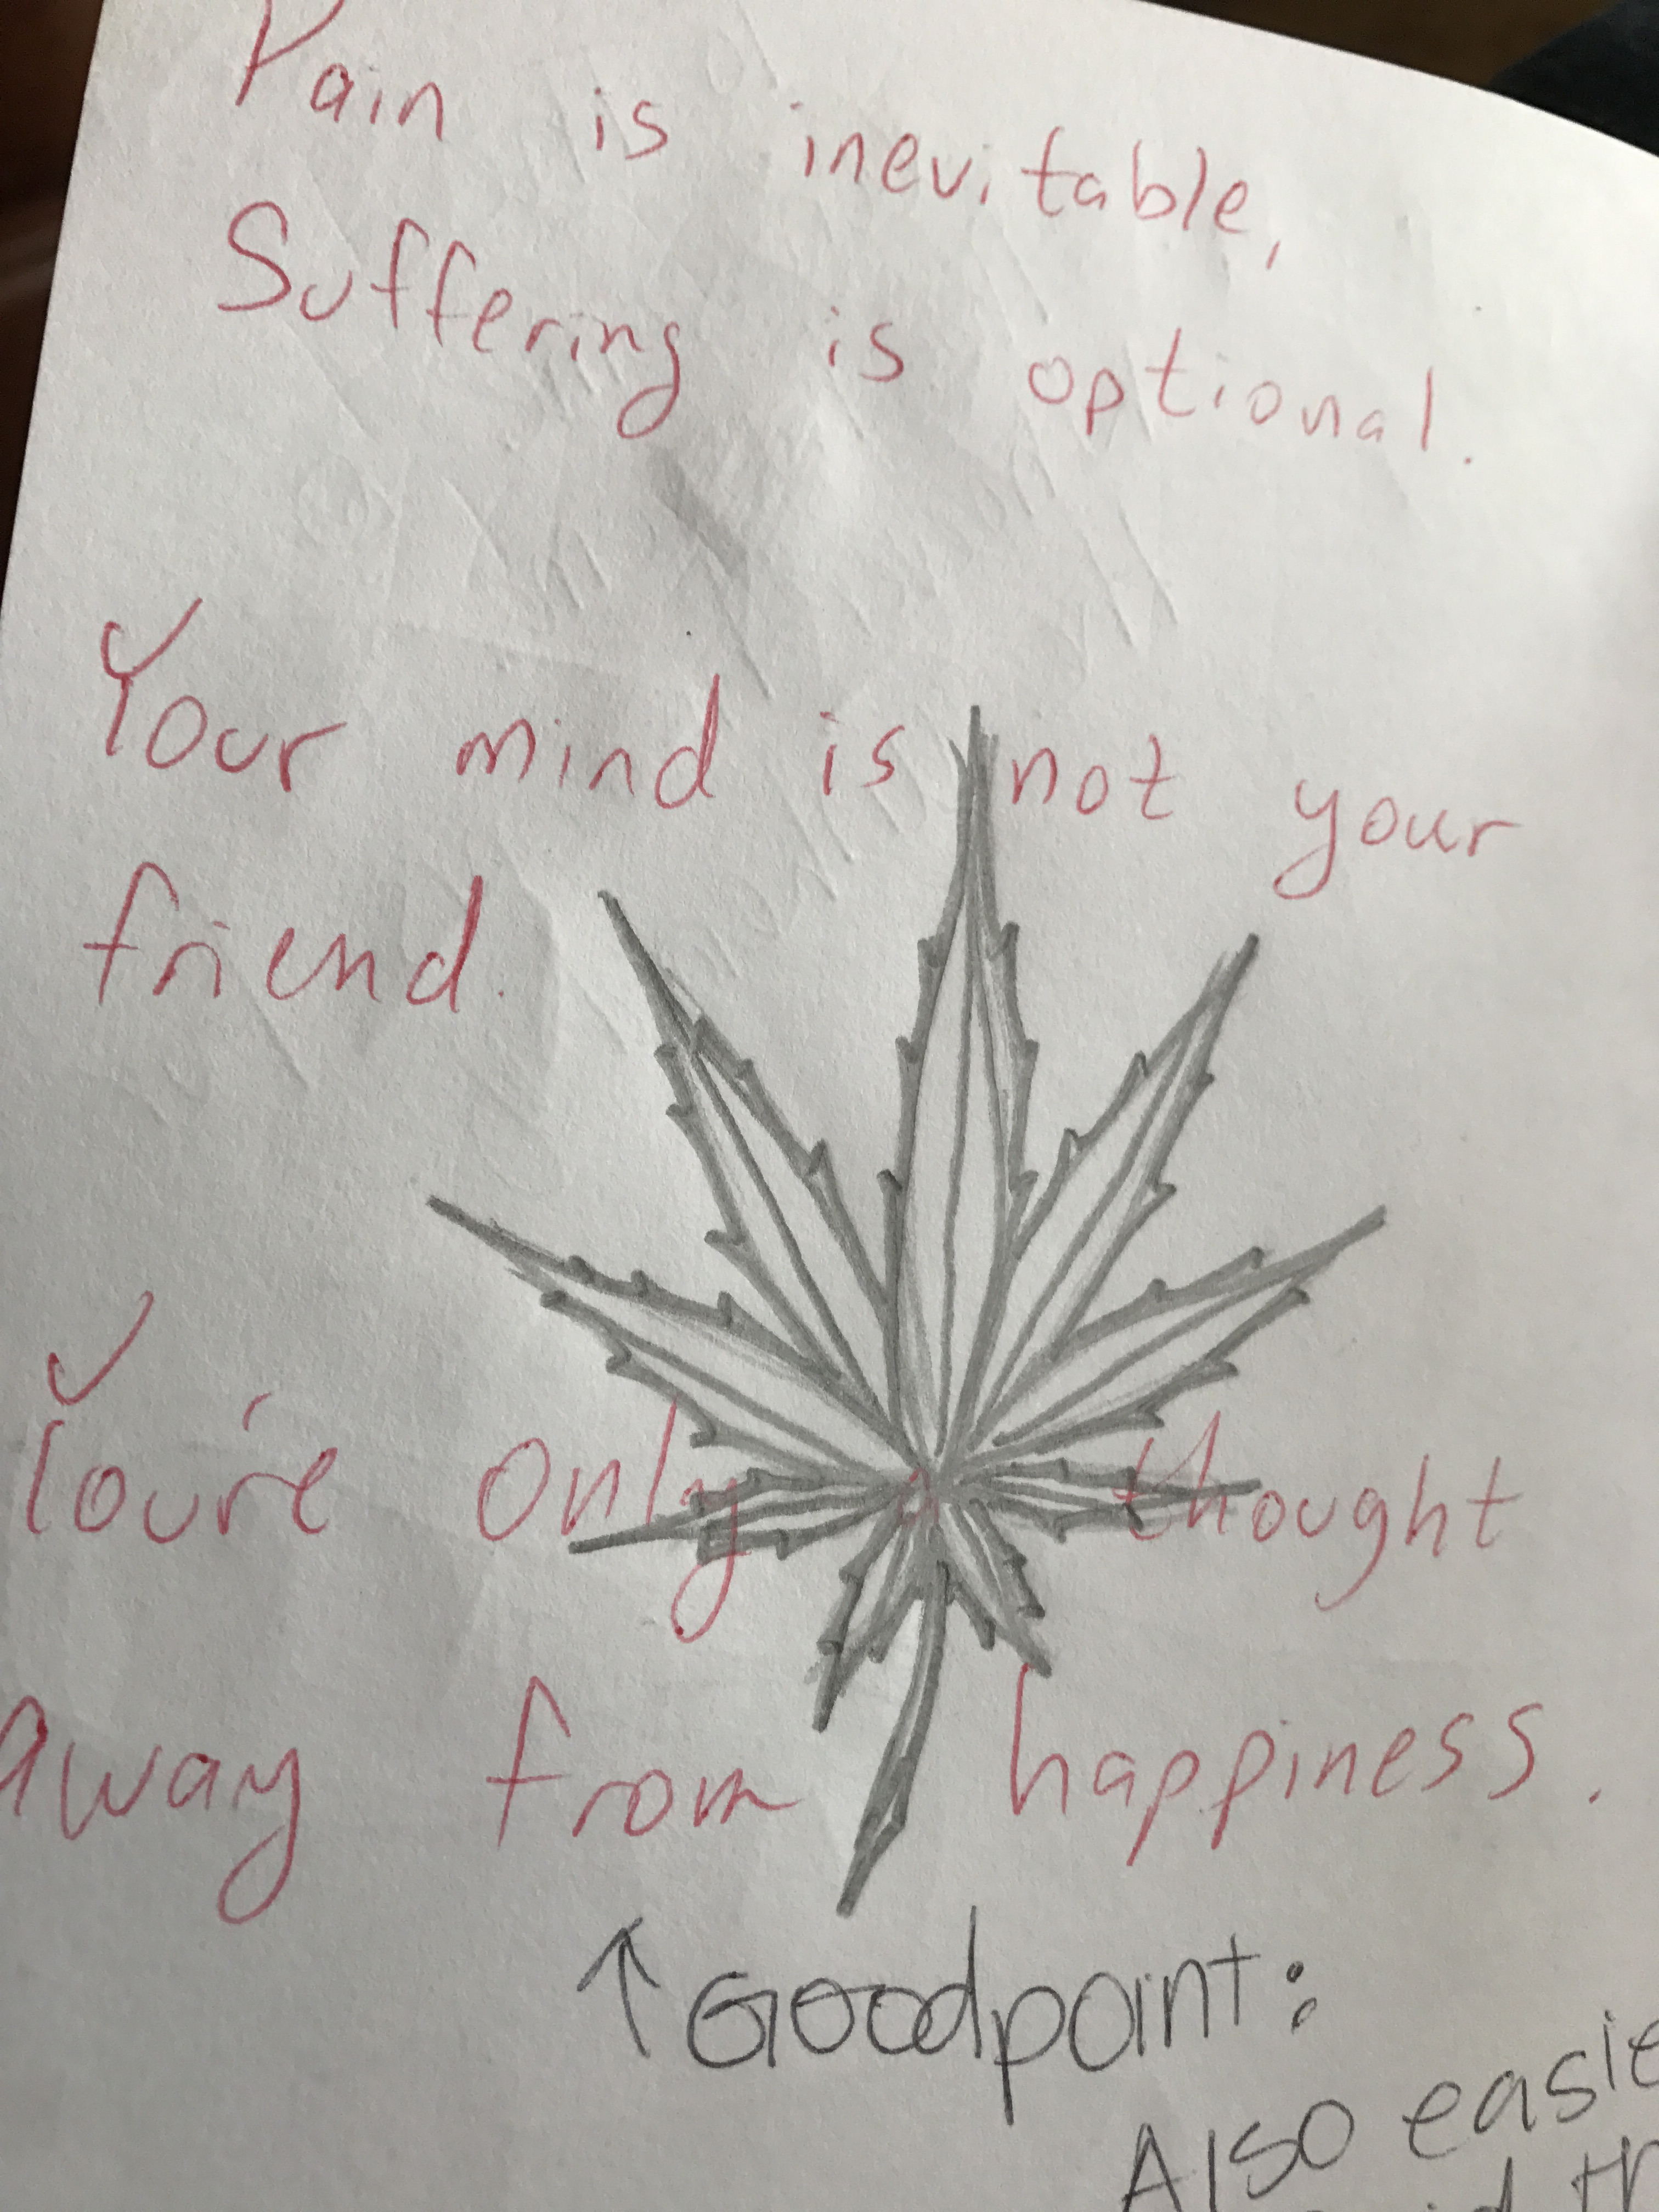 Pain is inevitable,
Suffering is optional.
Your mind is not your
friend.
You're only a thought
away from happiness.
↑ Goodpoint:
Also